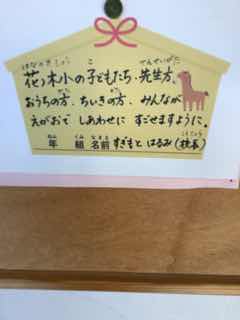 はなのきしょう こ せんせいがた
花ノ木小の子どもたち、先生方、
おうちの方、ちいきの方、みんなが
えがおで しあわせに すごせますように。
ねん くみ なまえ こうちょう
年 組 名前 すぎもと はるみ(校長)